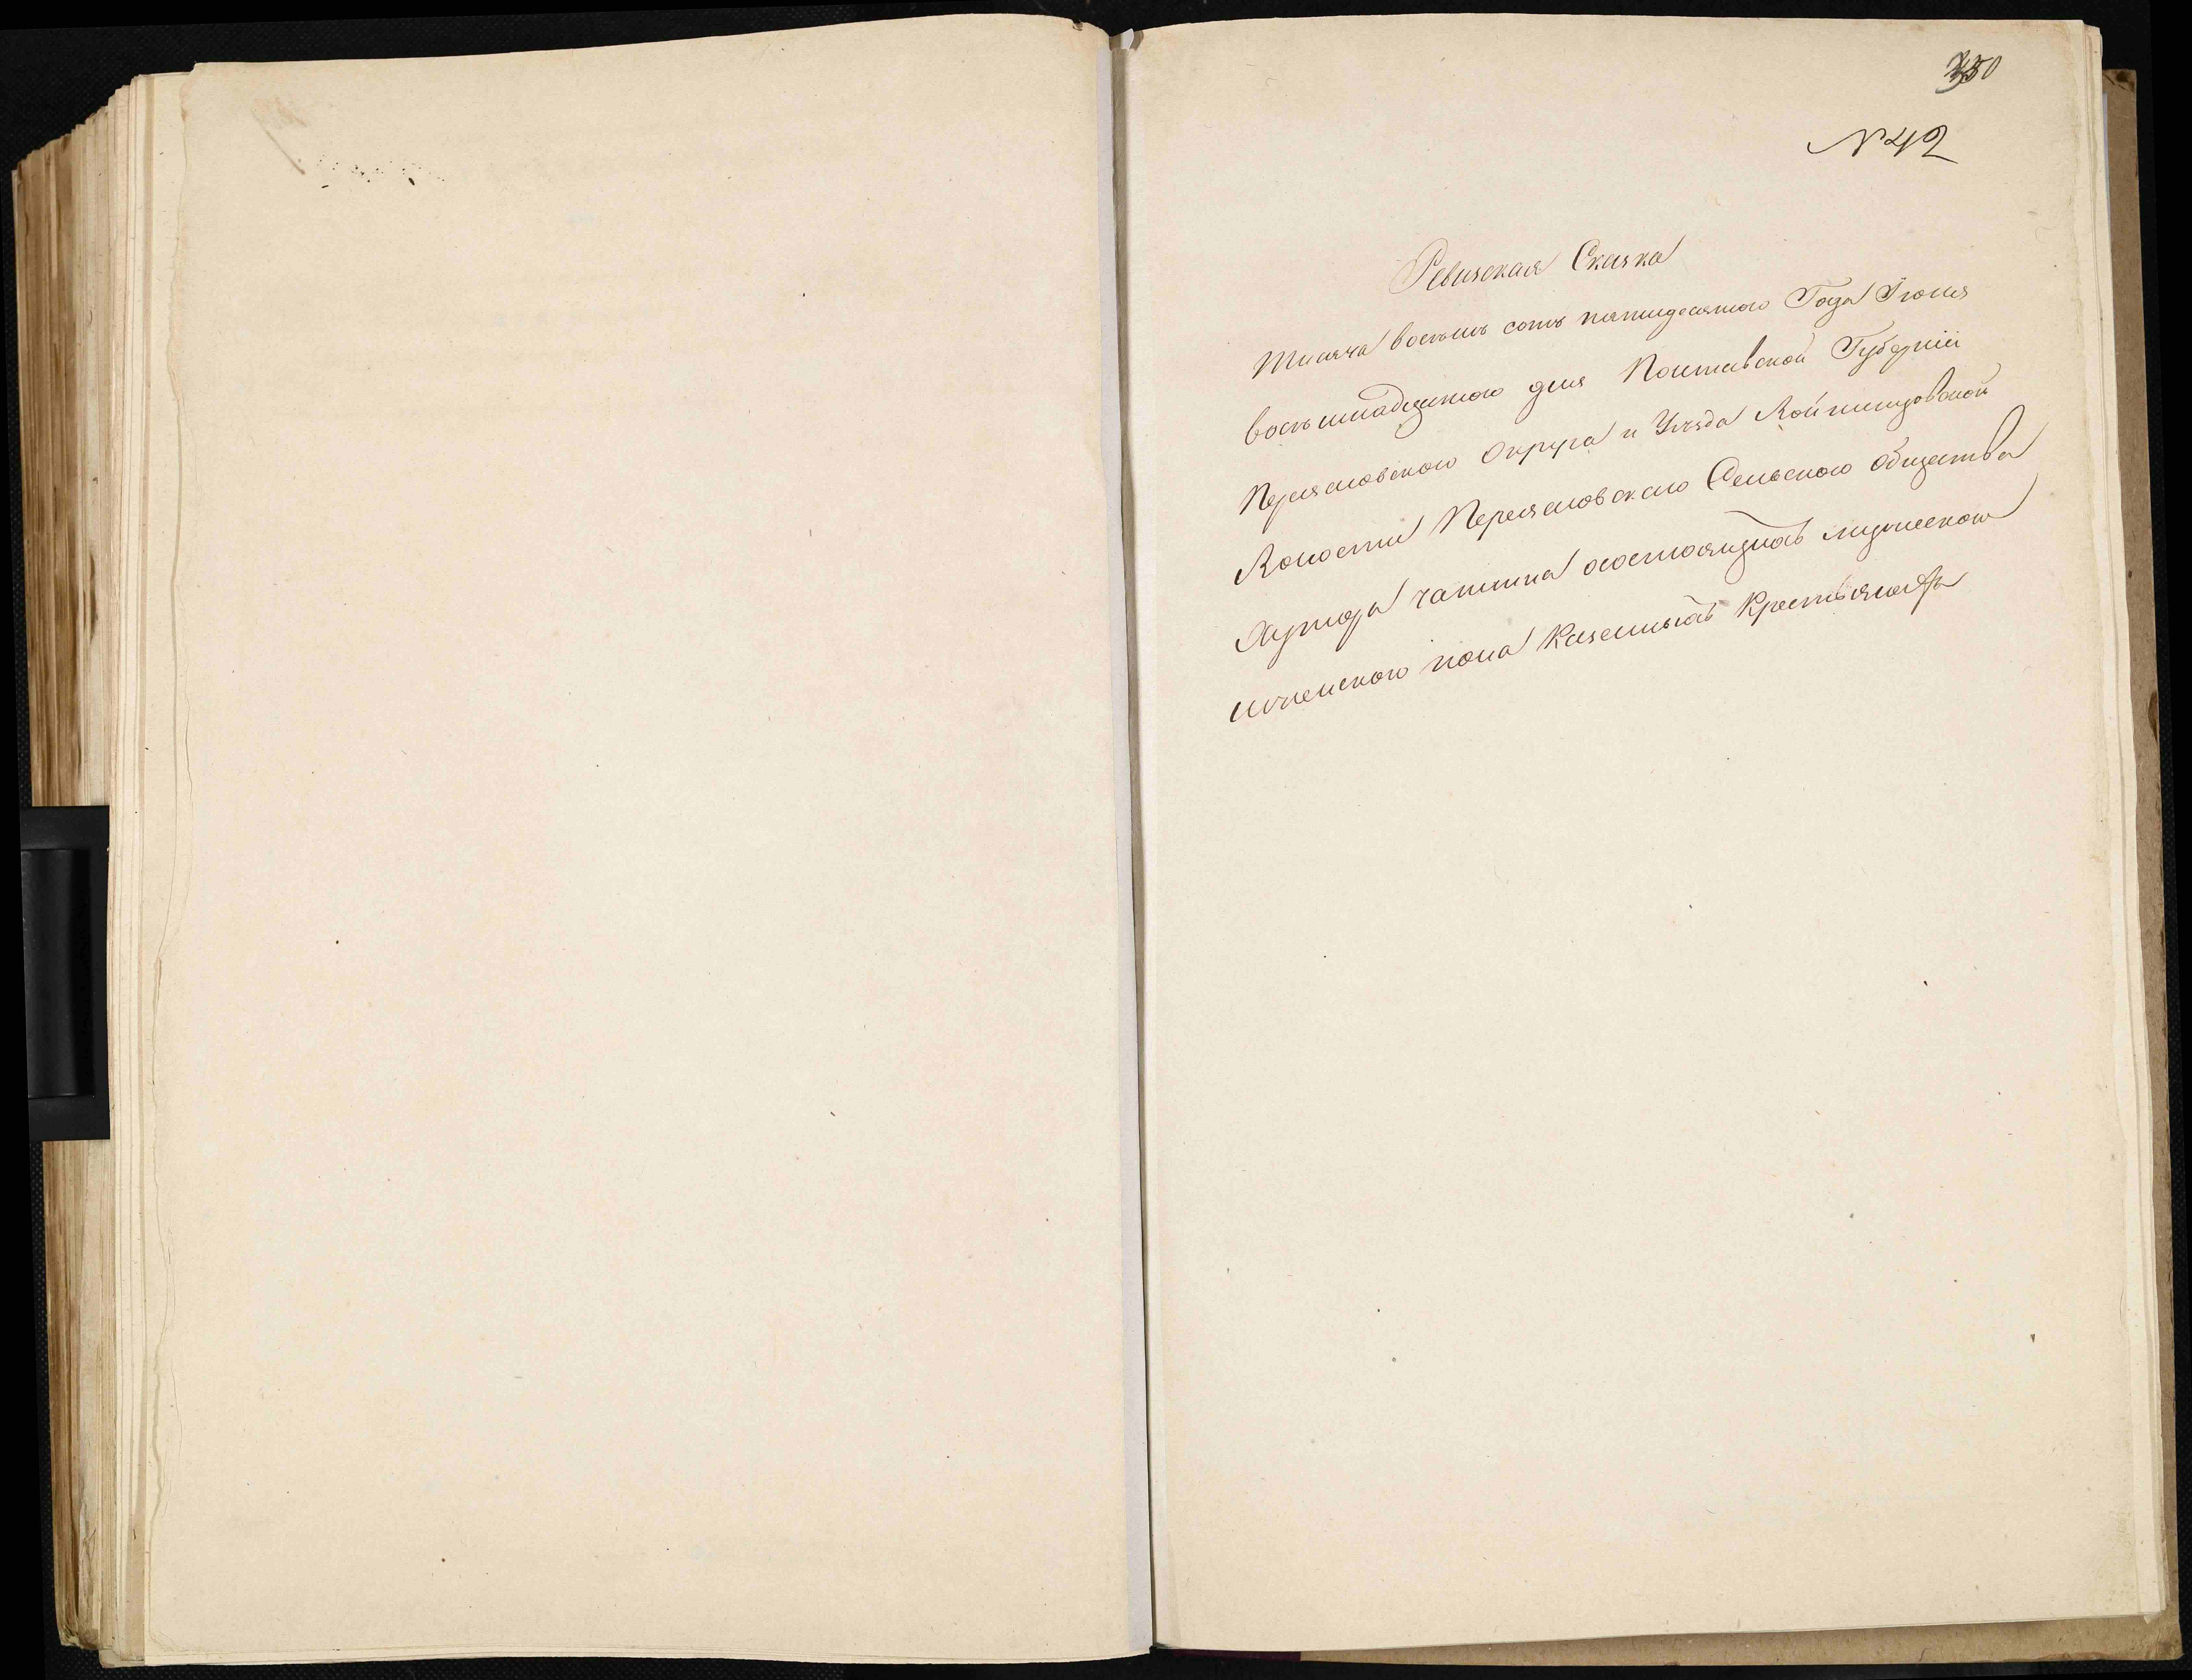 350
№ 42
Ревизская Сказка
Тисяча восемь сотъ пятидесятого Года Іюня
восьмнадцятого дня Полтавской Губерніи
Переясловского Округа и Уезда Войтицовской
Волости Переясловскаго Сельского общества
Хутора состоящихъ мужеского
женского пола Казенныхъ Крестьянахъ